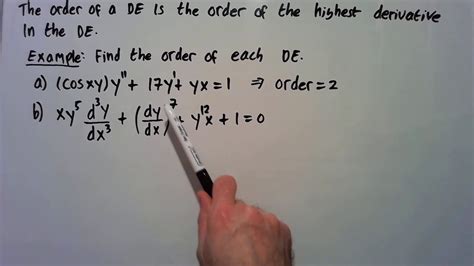 The order of a DE is the order of the highest derivative
in the DE.
Example: Find the order of each DE.
a) (cosxy)y'' + 17y' + yx = 1 ⇒ order = 2
b) xy⁵ d³y/dx³ + (dy/dx)⁷ y¹²x + 1 = 0